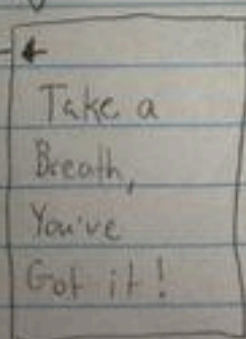 Take a
Breath,
You've
Got it!